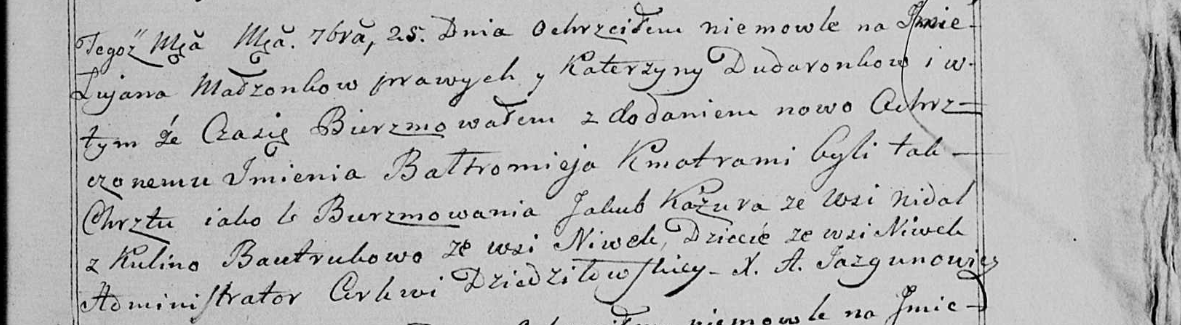 Tegoż Mca Mca. 7bra, 25. Dnia Ochrzciłem niemowle na Jmie-
Lujana Małżonkow prawych y Katerzyny Dudaronkow i w-
tym że Czasię Bierzmowałem z dodaniem nowo Ochrz-
czonemu Jmienia Bałtromieja Kmotrami byli tak
Chrztu iako b Burzmowania Jakub Każura ze wsi nidal
z Kulino Bautrukowo ze wsi Niwek, Dziecie ze wsi Niwek
Administrator Cerkwi Dziedziłowskiey - X. A. Jazgunowicz
niemowle na Jmie-